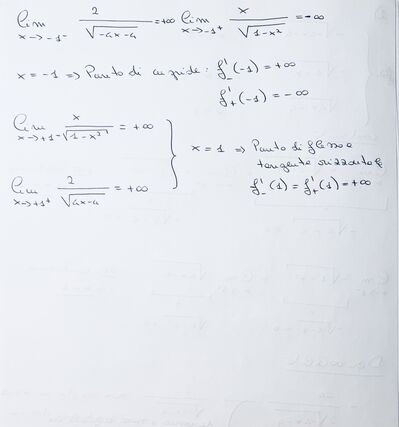 lim x→-1⁻ 2/√(-4x-4) = +∞ lim x→-1⁺ x/√(1-x²) = -∞
x = -1 ⇒ Punto di cuspide: f'₋(-1) = +∞
f'₊(-1) = -∞
lim x→+1⁻ x/√(1-x²) = +∞
x = 1 ⇒ Punto di flesso a
tangente
lim x→+1⁺ 2/√(4x-4) = +∞
f'₋(1) = f'₊(1) = +∞